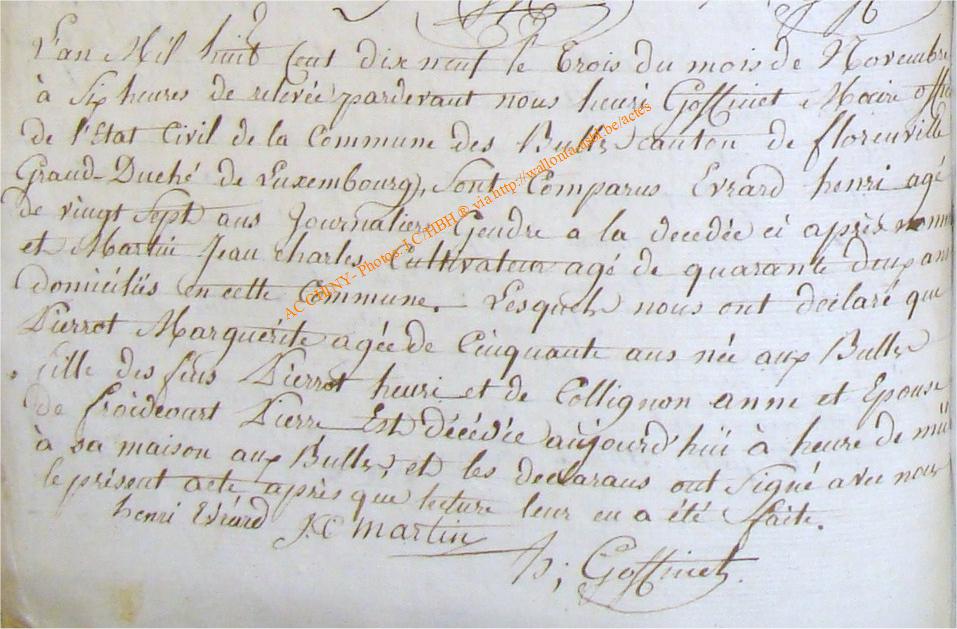 L'an Mil huit Cent dix neuf le trois du mois de Novembre
à Six heures de relevée pardevant nous henri Goffinet Maire offi
de l'Etat Civil de la Commune des Bulles canton de florenville
Grand-Duché de Luxembourg, Sont Comparus Evrard henri agé
de vingt Sept ans Journalier Gendre a la decedée ci après nommé
et Martin Jean charles Cultivateur agé de quarante deux ans
domiciliés en cette Commune. Lesquels nous ont declaré que
Pierrot Marguérite agée de Cinquante ans née aux Bulles
fille des feus Pierrot henri et de Collignon anne et Epouse
de froidcourt Pierre Est décédée aujourd'hüi à heure de midi
à sa maison aux Bulles, et les declarans ont Signé avec nous
le présent acte après que lecture leur en a été faite.
henri Evrard J.C martin
h; Goffinet.
AC CHINY- Photos: J.C/HBH ® via http://wallonia.asbl.be/actes